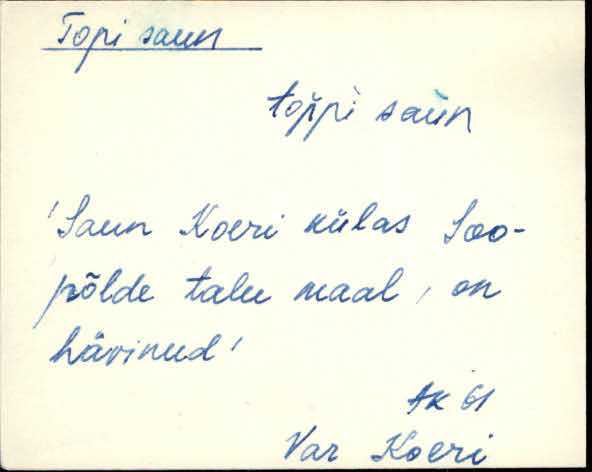 Topi saun
toppi saun
'Saun Koeri külas Soo-
põlde talu maal, on
hävinud'
AK 61
Var Koeri